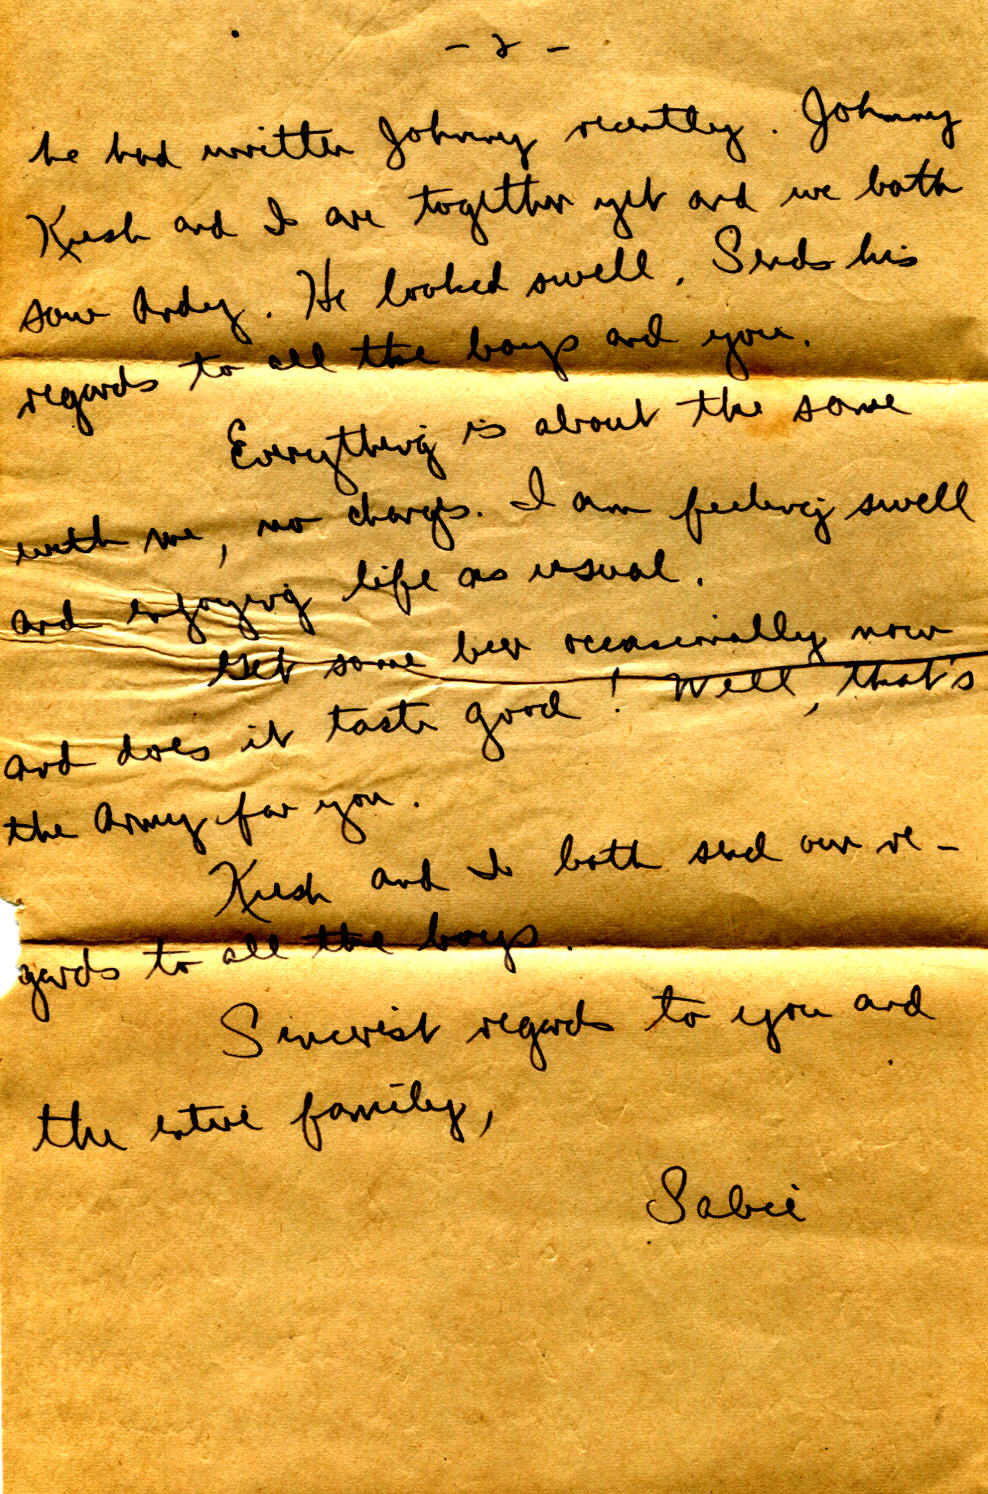 - 2 -
he had written Johnny recently. Johnny
Kush and I are together yet and we both
saw Andy. He looked swell. Sends his
regards to all the boys and you.
Everything is about the same
with me, no change. I am feeling swell
and enjoying life as usual.
Get some beer occasionally now
and does it taste good! Well, that's
the Army for you.
Kush and I both send our re-
gards to all the boys.
Sincerist regards to you and
the entire family,
Sabie